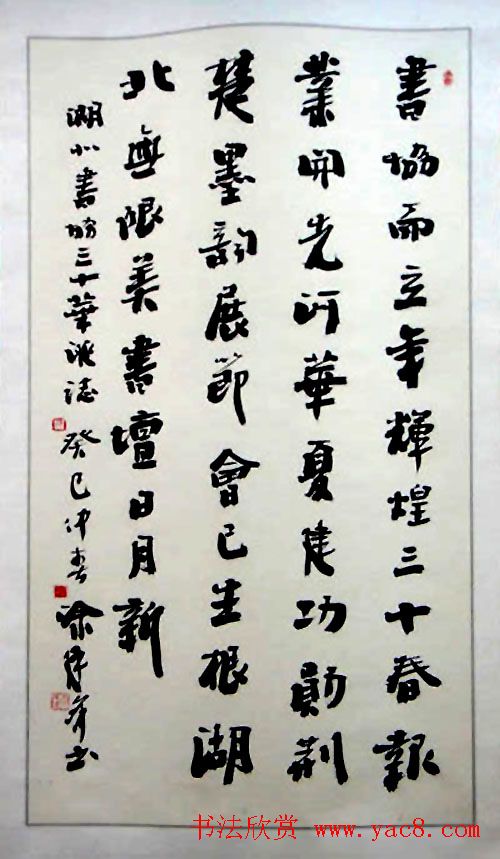 書協而立年輝煌三十春報
業開先河華夏建功勛荆
楚墨韵展節會已生根湖
北無限美書壇日月新
湖北書協三十華誕誌 癸巳仲春 书
书法欣赏 www.yac8.com